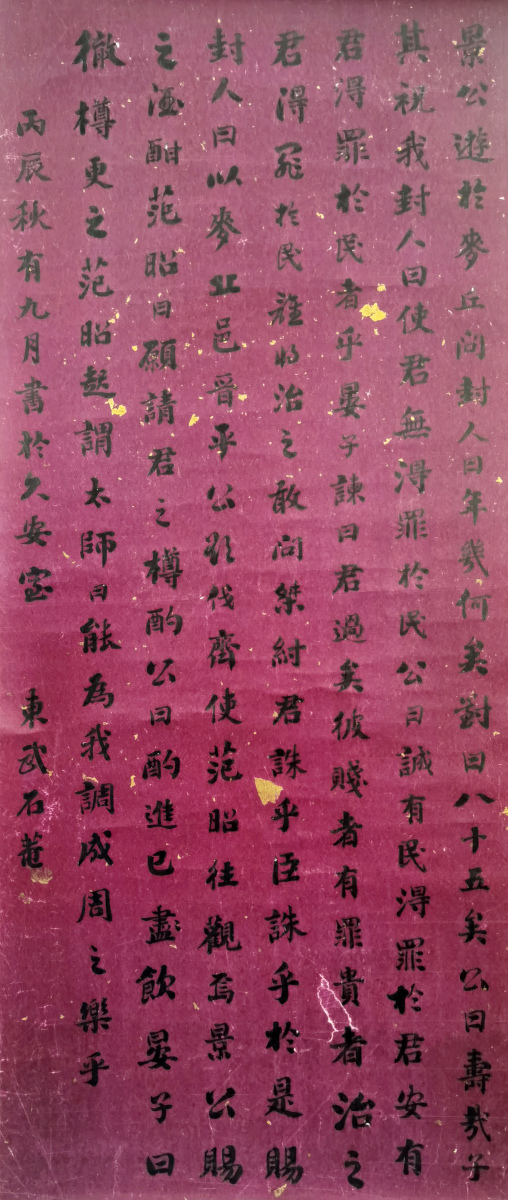 景公遊於麥丘問封人曰年幾何矣對曰八十五矣公曰壽哉子
其祝我封人曰使君無得罪於民公曰誠有民得罪於君安有
君得罪於民者乎晏子諫曰君過矣彼賤者有罪貴者治之
君得罪於民誰將治之敢問桀紂君誅乎民誅乎於是賜
封人曰以麥丘邑晉平公欲伐齊使范昭往觀焉景公賜
之酒酣范昭曰願請君之樽酌公曰酌進已盡飲晏子曰
徹樽更之范昭起謂太師曰能為我調成周之樂乎
丙辰秋有九月書於久安室 東武石菴